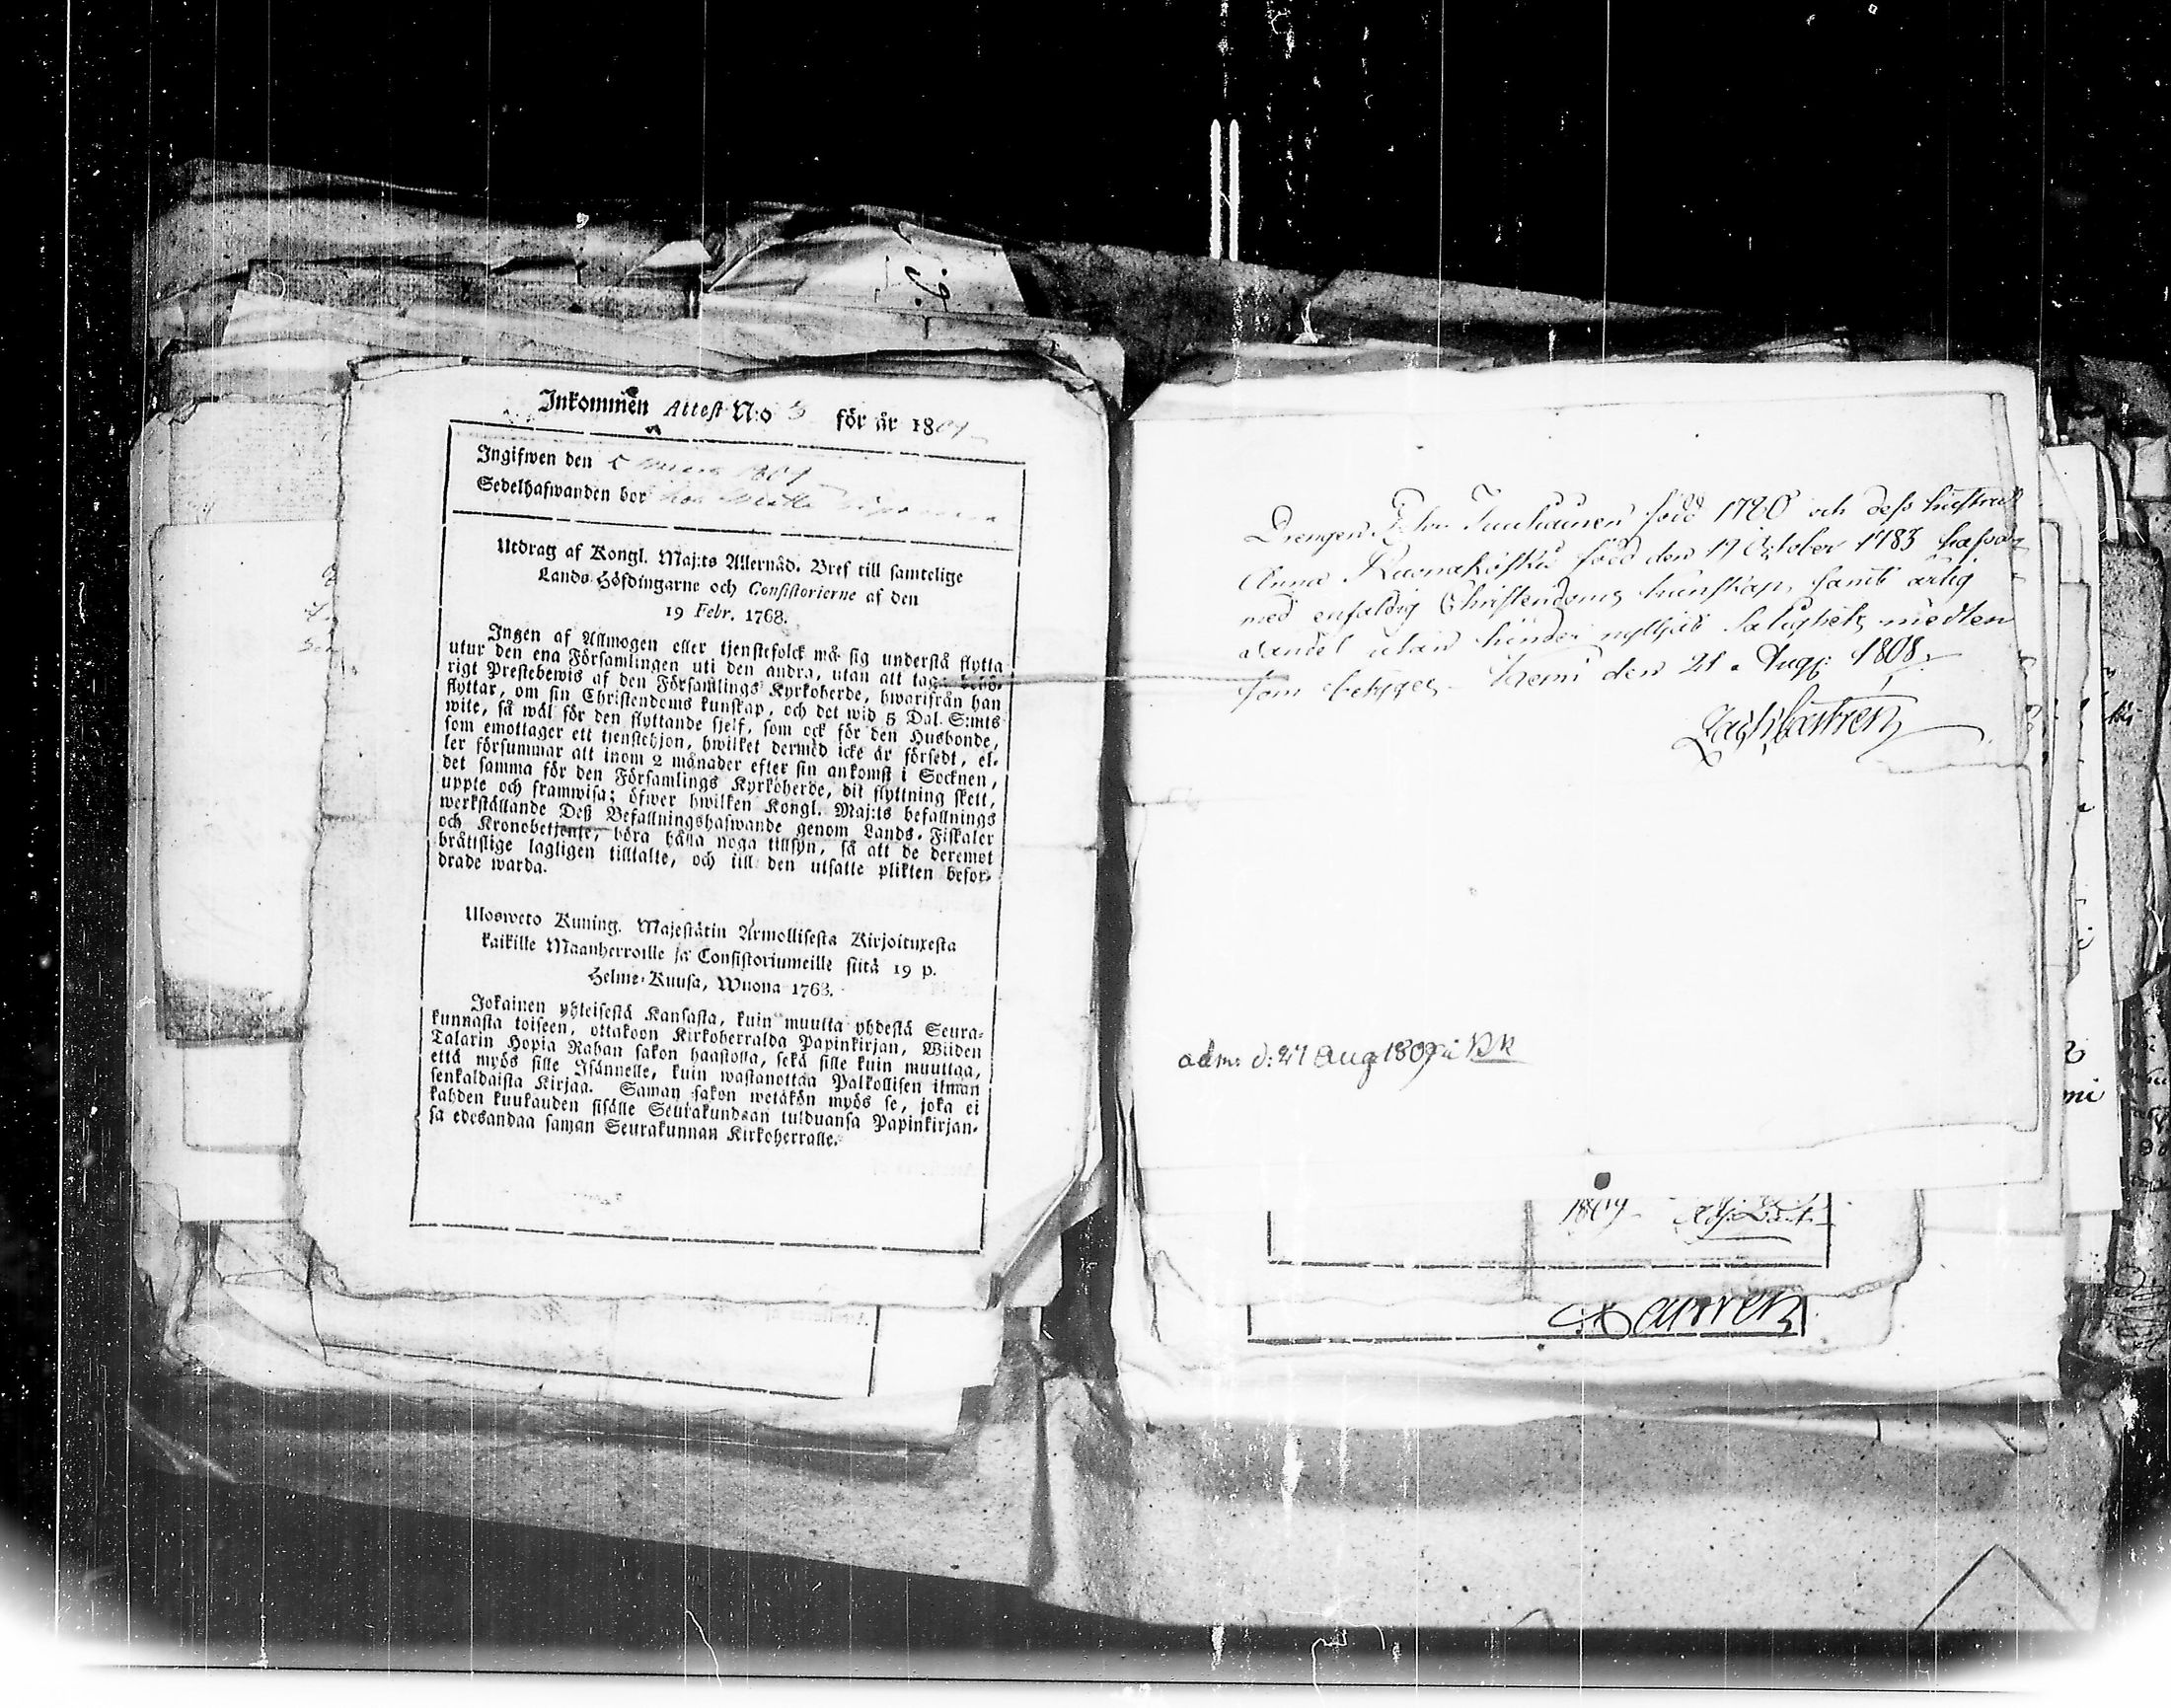 Inkommen Attest N:o 3 för år 1809
Ingifwen den 5 1809
Sedelhafwanden bor hos Matts
Utdrag af Kongl. Maj:ts Allernåd. Bref till samtelige
Lands-Höfdingarne och Consistorierne af den
19 Febr. 1768.
Ingen af Allmogen eller tjenstefolck må sig understå flytta
utur den ena Församlingen uti den andra, utan att taga behö-
rigt Prestebewis af den Församlings Kyrkoherde, hwarifrån han
flyttar, om sin Christendoms kunskap, och det wid 5 Dal. S:mts
wite, så wäl för den flyttande sjelf, som ock för den Husbonde,
som emottager ett tjenstehjon, hwilket dermed icke är försedt, el-
ler försummar att inom 2 månader efter sin ankomst i Socknen,
det samma för den Församlings Kyrkoherde, dit flyttning skett,
uppte och framwisa; öfwer hwilken Kongl. Maj:ts befallnings
werkställande Deß Befallningshafwande genom Lands-Fiskaler
och Kronobetjente, böra hålla noga tillsyn, så att de deremot
bråttslige lagligen tilltalte, och till den utsatte plikten befor-
drade warda.
Ulosweto Kuning. Majestätin Armollisesta Kirjoituxesta
kaikille Maanherroille ja Consistoriumeille siitä 19 p.
Helme-Kuusa, Wuona 1768.
Jokainen yhteisestä Kansasta, kuin muutta yhdestä Seura-
kunnasta toiseen, ottakoon Kirkoherralda Papinkirjan, Wiiden
Talarin Hopia Rahan sakon haastolla, sekä sille kuin muuttaa,
että myös sille Isännelle, kuin wastanottaa Palkollisen ilman
senkaldaista Kirjaa. Saman sakon wetäkön myös se, joka ei
kahden kuukauden sisälle Seurakundaan tulduansa Papinkirjan-
sa edesandaa saman Seurakunnan Kirkoherralle.
Drengen Johan Juuhainen född 1780 och dess hustru
Anna född den 19 October 1783 hafva
med enfaldig Christendoms kunskap, samt ärlig
vandel utan hinder nyttjat salighets medlen
som betyges. Kemi den 21 Aug: 1808.
Castrén
adm. d: 27 Aug 1809
1809
Castrén